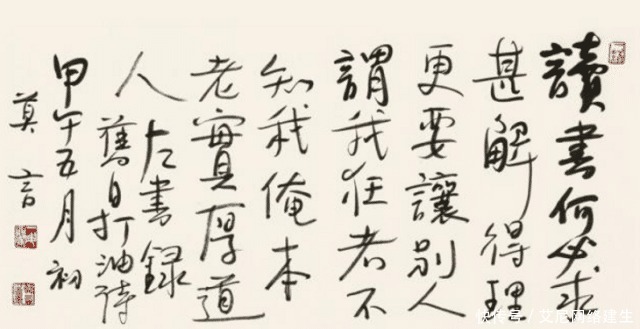 讀書何必求
甚解得理
更要讓別人
謂我狂者不
知我俺本
老實厚道
人
左書録
舊自打油詩
甲午五月初
莫言
快传号